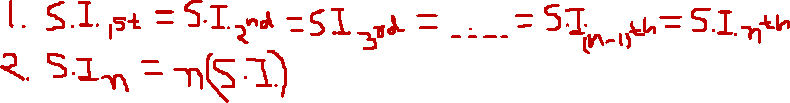 1. S.I. 1st = S.I. 2nd = S I. 3rd = ..... = S.I. (n-1)th = S.I. nth
2. S.I n = n(S.I.)